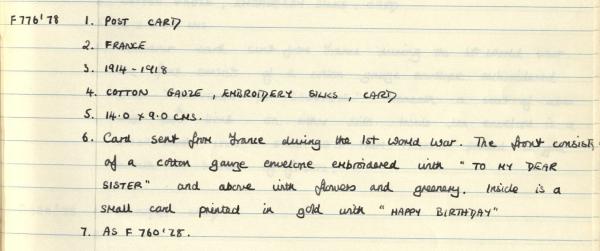 F776'78 1. POST CARD
2. FRANCE
3. 1914-1918
4. COTTON GAUZE, EMBROIDERY SILKS, CARD
5. 14.0 x 9.0 CMS.
6. Card sent from France during the 1st World War. The front consists
of a cotton gauze envelope embroidered with "TO MY DEAR
SISTER" and above with flowers and greenery. Inside is a
small card printed in gold with "HAPPY BIRTHDAY"
7. AS F 760'78.